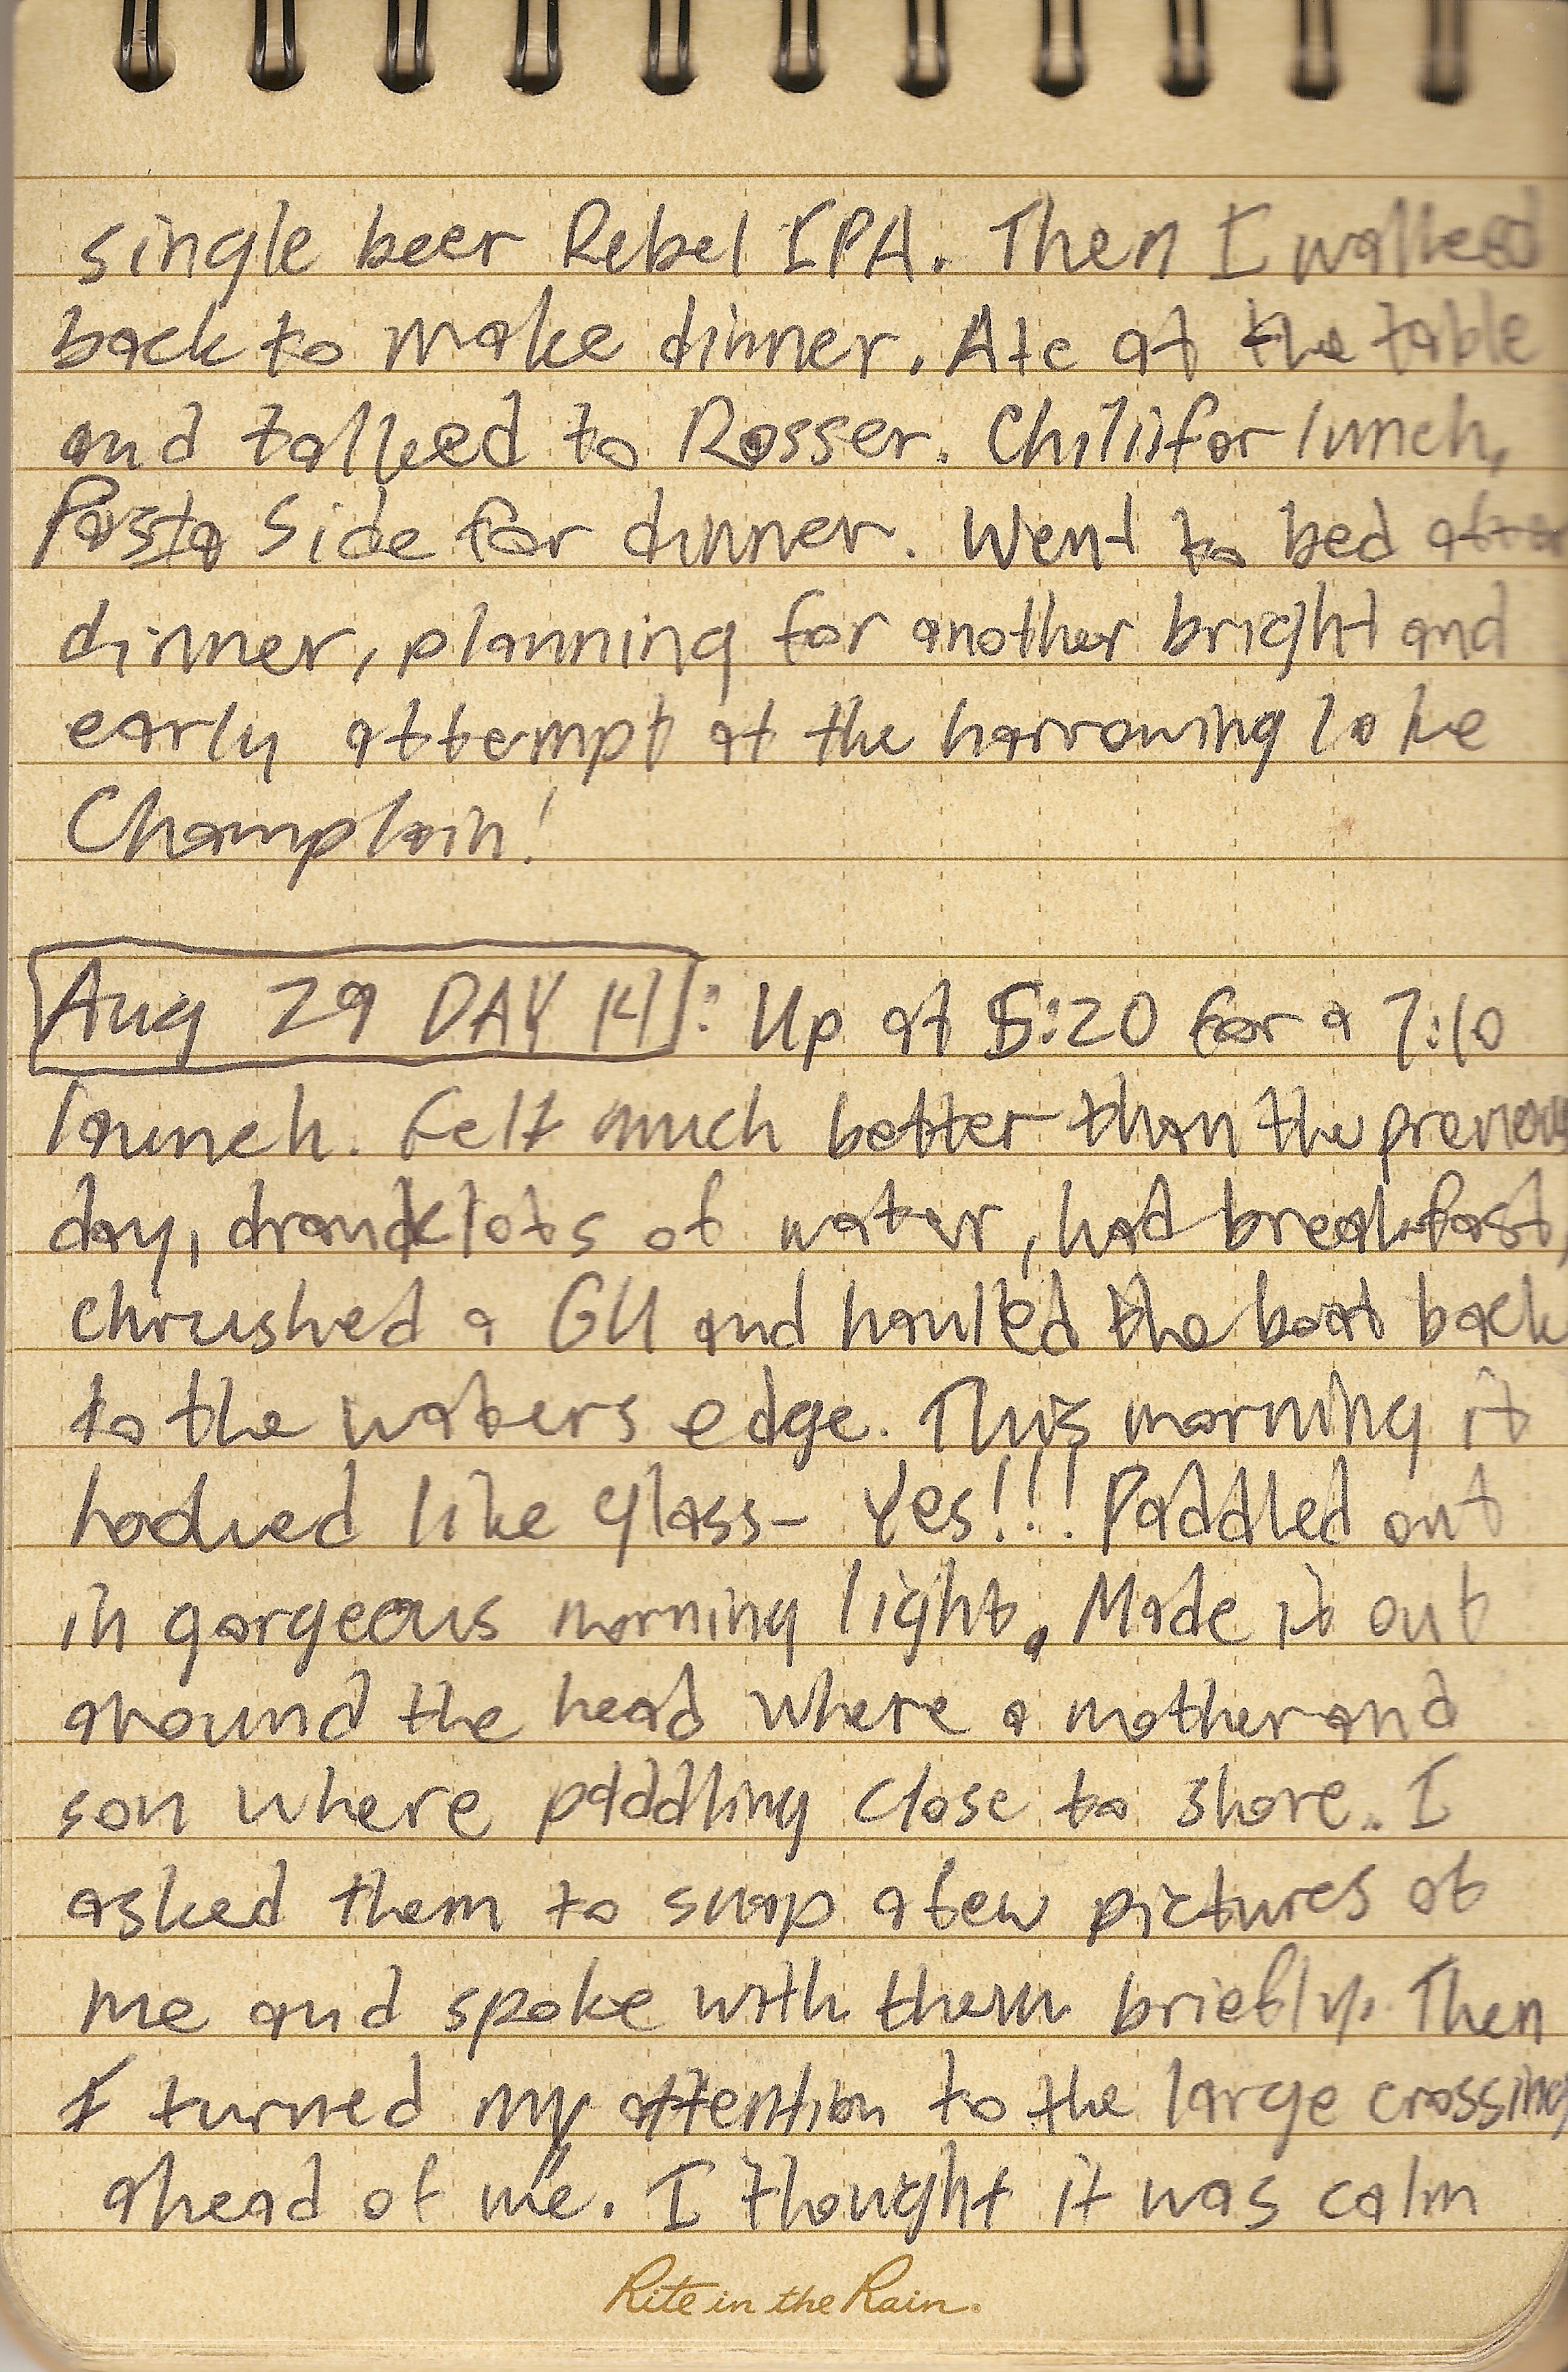 single beer Rebel IPA. Then I walked
back to make dinner. Ate at the table
and talked to Rosser. Chili for lunch,
Pasta Side for dinner. Went to bed after
dinner, planning for another bright and
early attempt at the harrowing lake
Champlain!
Aug 29 DAY 14: Up at 5:20 for a 7:10
launch. Felt much better than the previous
day, drank lots of water, had breakfast,
chrushed a GU and hauled the boat back
to the waters edge. This morning it
looked like glass- Yes!!! Paddled out
in gorgeous morning light. Made it out
around the head where a mother and
son where paddling close to shore.. I
asked them to snap a few pictures of
me and spoke with them briefly. Then
I turned my attention to the large crossing
ahead of me. I thought it was calm
Rite in the Rain.